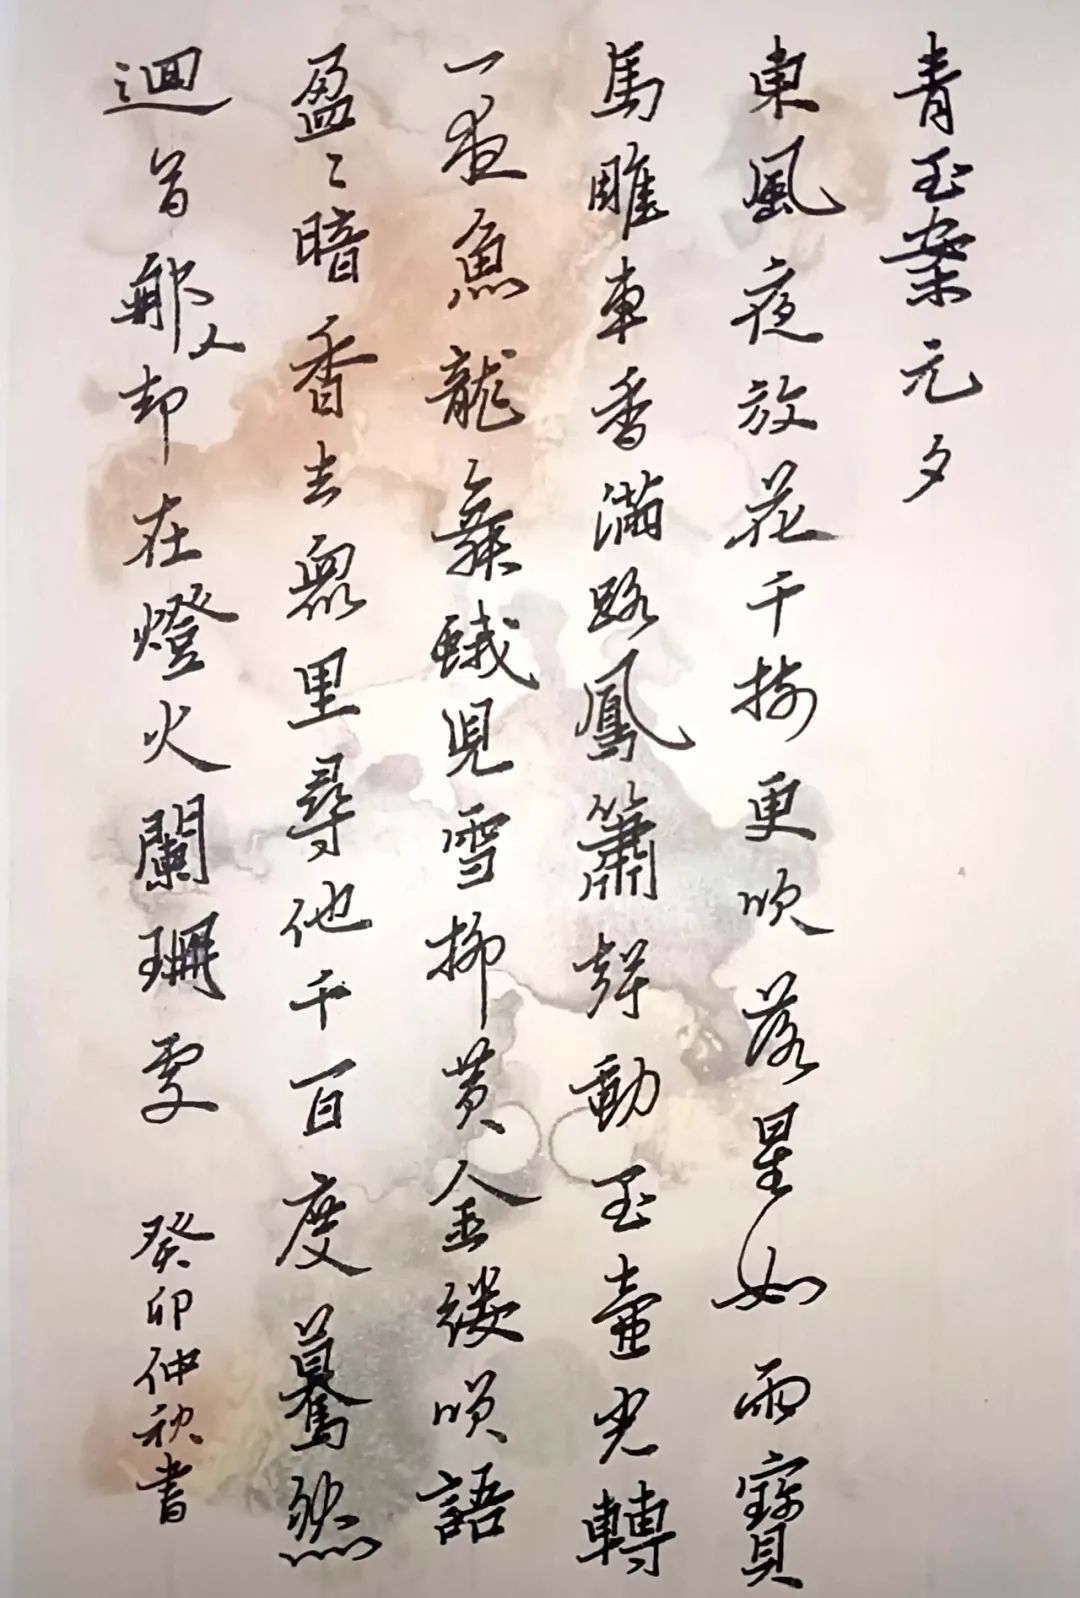 青玉案元夕
東風夜放花千樹更吹落星如雨寶
馬雕車香滿路鳳簫聲動玉壺光轉
一夜魚龍舞蛾兒雪柳黃金縷唄語
盈〻暗香去眾里尋他千百度驀然
迴首那人却在燈火闌珊處
癸卯仲秋書